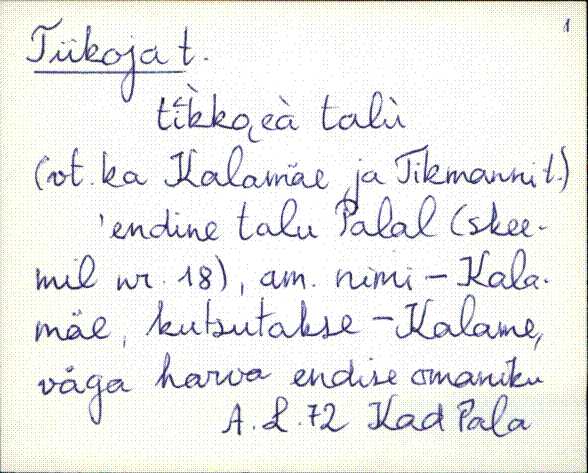 1
Tiikoja t.
tì̀kkoeà talù
(vt. ka Kalamäe ja Tikmanni t.)
'endine talu Palal (skee-
mil nr. 18), am. nimi - Kala-
mäe, kutsutakse - Kalame,
väga harva endise omaniku
A. L. 72 Kad Pala